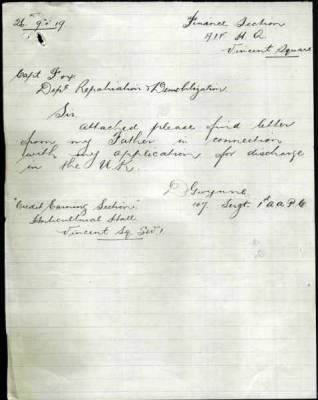 26 9 19
Finance Section
AIF H.Q
Vincent Square
Capt Fox
Dept Repatriation & Demobilization
Sir.
Attached please find letter
from my Father in connection
with my application for discharge
in the U.K.
D Gwynne
107 Sergt 1st A A P C
"Credit Carding Section"
Horticultural Hall
Vincent Sq SW.1